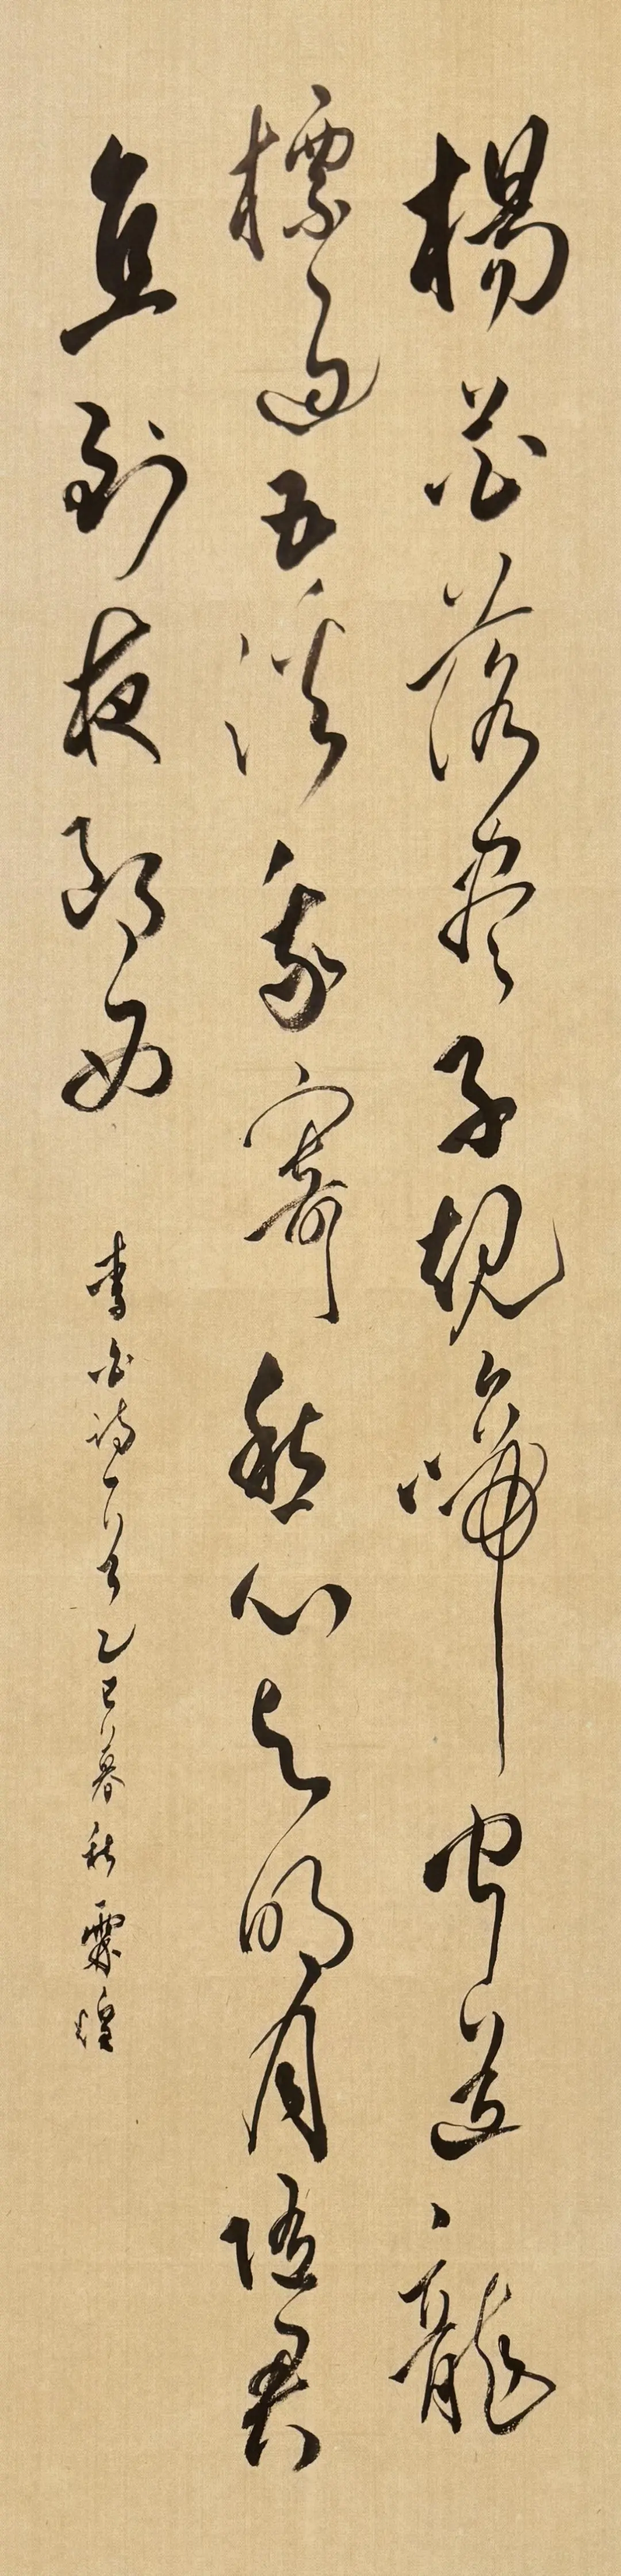 楊花落盡子規啼聞道龍
標過五溪我寄愁心与明月随君
直到夜郎西
李白詩一首乙巳暮秋霖煌